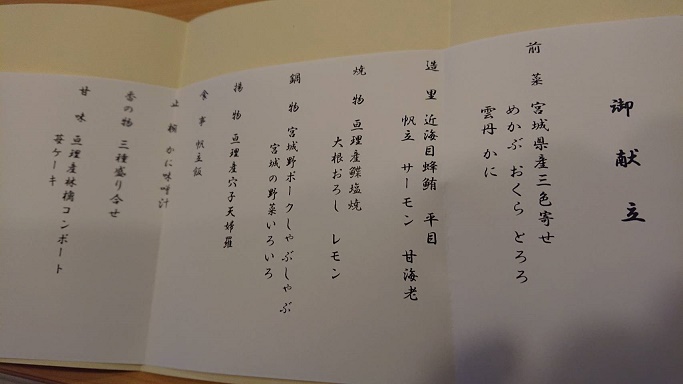 御献立
前菜 宮城県産三色寄せ
めかぶ おくら とろろ
雲丹 かに
造里 近海目蜂鮪 平目
帆立 サーモン 甘海老
焼物 亘理産鰈塩焼
大根おろし レモン
鍋物 宮城野ポークしゃぶしゃぶ
宮城の野菜いろいろ
揚物 亘理産穴子天婦羅
食事 帆立飯
止椀 かに味噌汁
香の物 三種盛り合せ
甘味 亘理産林檎コンポート
苺ケーキ